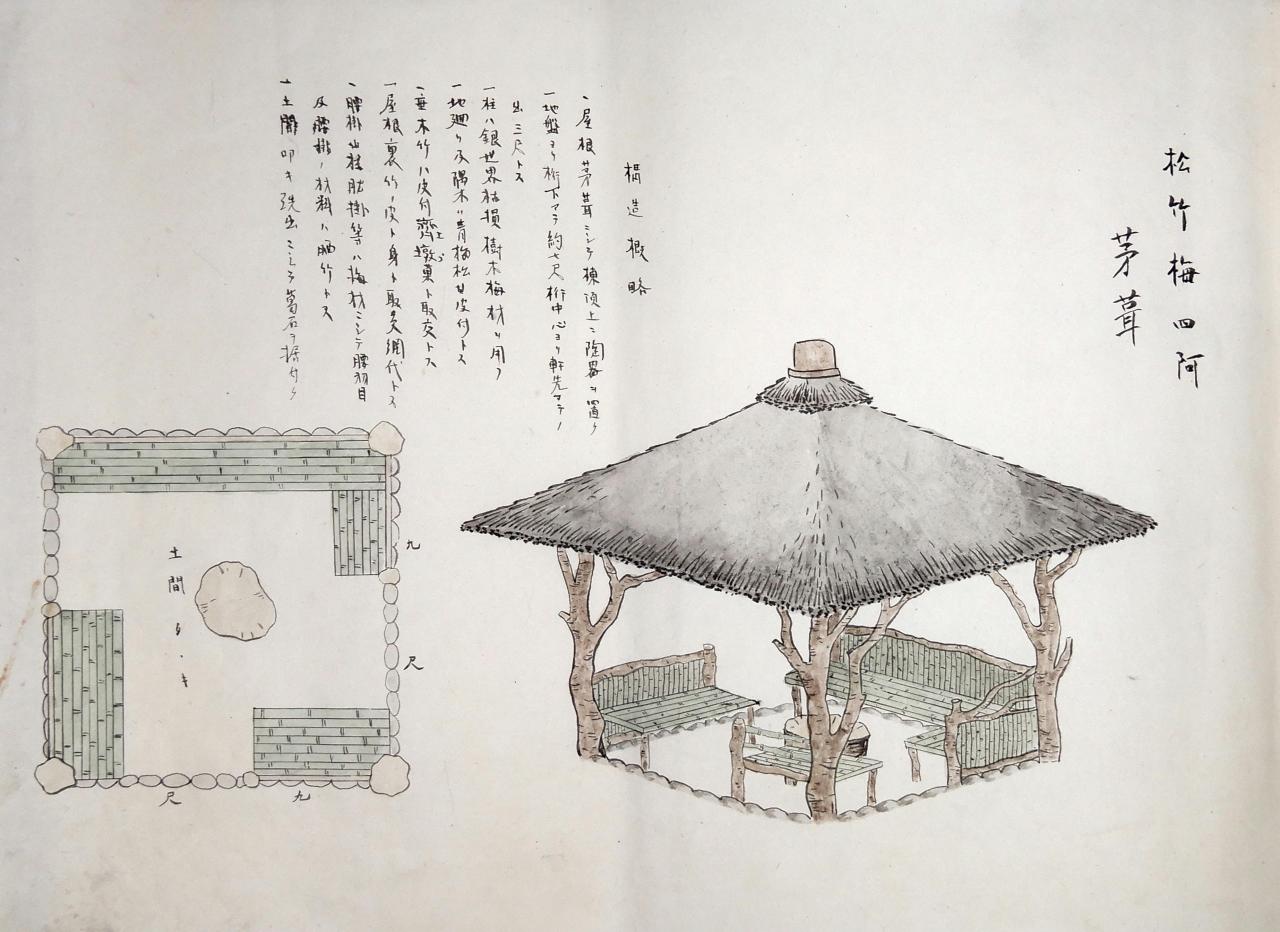 松竹梅四阿
茅葺
構造概略
一屋根茅葺ニシテ棟頂上ニ陶器ヲ置ク
一地盤ヨリ桁下マデ約七尺桁中心ヨリ軒先マテノ
出三尺トス
一柱ハ銀世界枯損樹木梅材ヲ用フ
一地廻リ及隅木ハ青梅松甘皮付トス
一垂木竹ハ皮付ト取交トス
一屋根裏竹ノ皮ト身ト取交網代トス
一腰掛袖柱肱掛等ハ梅材ニシテ腰羽目
及腰掛ノ材料ハ晒竹トス
一土間叩キ洗出ニシテ葛石ヲ据付ク
九
尺
土間タヽキ
尺
九